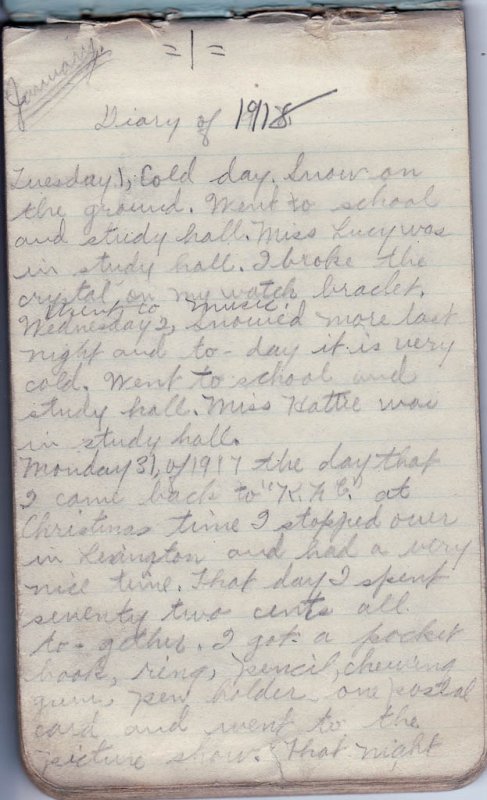 = 1 =
January.
Diary of 1918
Tuesday 1, Cold day. Snow on
the ground. Went to school
and study hall. Miss Lucy was
in study hall. I broke the
crystal on my watch braclet.
Went to music.
Wednesday 2, Snowed more last
night and to-day it is very
cold. Went to school and
study hall. Miss Hattie was
in study hall.
Monday 31, of 1917 the day that
I came back to "K.F.C." at
Christmas time I stopped over
in Lexington and had a very
nice time. That day I spent
seventy two cents all
to-gether. I got a pocket
book, ring, pencil, chewing
gum, pen holder one postal
card and went to the
picture show. That night